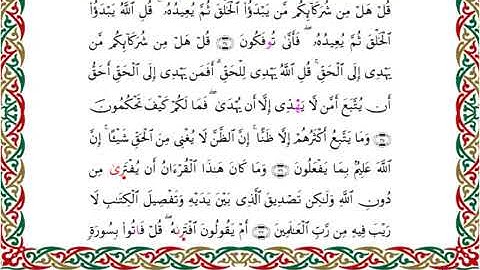 قُلْ هَلْ مِن شُرَكَآئِكُم مَّن يَبْدَؤُا۟ ٱلْخَلْقَ ثُمَّ يُعِيدُهُۥ ۚ قُلِ ٱللَّهُ يَبْدَؤُا۟
ٱلْخَلْقَ ثُمَّ يُعِيدُهُۥ ۖ فَأَنَّىٰ تُوفَكُونَ ۝ قُلْ هَلْ مِن شُرَكَآئِكُم مَّن
يَهْدِى إِلَى ٱلْحَقِّ ۚ قُلِ ٱللَّهُ يَهْدِى لِلْحَقِّ ۗ أَفَمَن يَهْدِى إِلَى ٱلْحَقِّ أَحَقُّ
أَن يُتَّبَعَ أَمَّن لَّا يَهْدِى إِلَّآ أَن يُهْدَىٰ ۖ فَمَا لَكُمْ كَيْفَ تَحْكُمُونَ
۝ وَمَا يَتَّبِعُ أَكْثَرُهُمْ إِلَّا ظَنًّا ۚ إِنَّ ٱلظَّنَّ لَا يُغْنِى مِنَ ٱلْحَقِّ شَيْـًٔا ۚ إِنَّ
ٱللَّهَ عَلِيمٌۢ بِمَا يَفْعَلُونَ ۝ وَمَا كَانَ هَـٰذَا ٱلْقُرْءَانُ أَن يُفْتَرَىٰ مِن
دُونِ ٱللَّهِ وَلَـٰكِن تَصْدِيقَ ٱلَّذِى بَيْنَ يَدَيْهِ وَتَفْصِيلَ ٱلْكِتَـٰبِ لَا
رَيْبَ فِيهِ مِن رَّبِّ ٱلْعَـٰلَمِينَ ۝ أَمْ يَقُولُونَ ٱفْتَرَىٰهُ ۖ قُلْ فَاتُوا۟ بِسُورَةٍ